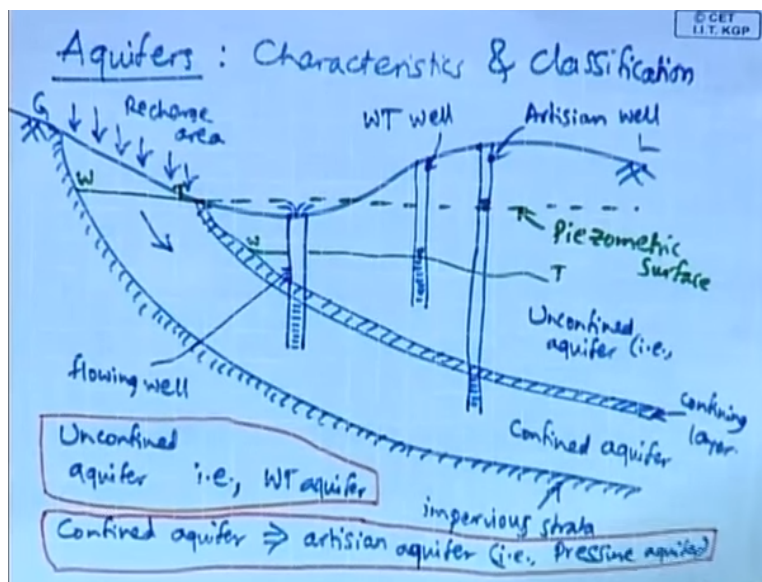 © CET
I.I.T. KGP
Aquifers : Characteristics & Classification
G
Recharge
area
WT well
Artisian well
L
W
T
Piezometric
Surface
W
T
Unconfined
aquifer (i.e.,
flowing well
Confining
layer.
Confined aquifer
Unconfined
aquifer i.e., WT aquifer
impervious strata
Confined aquifer ⇒ artisian aquifer (i.e., Pressure aquifer)